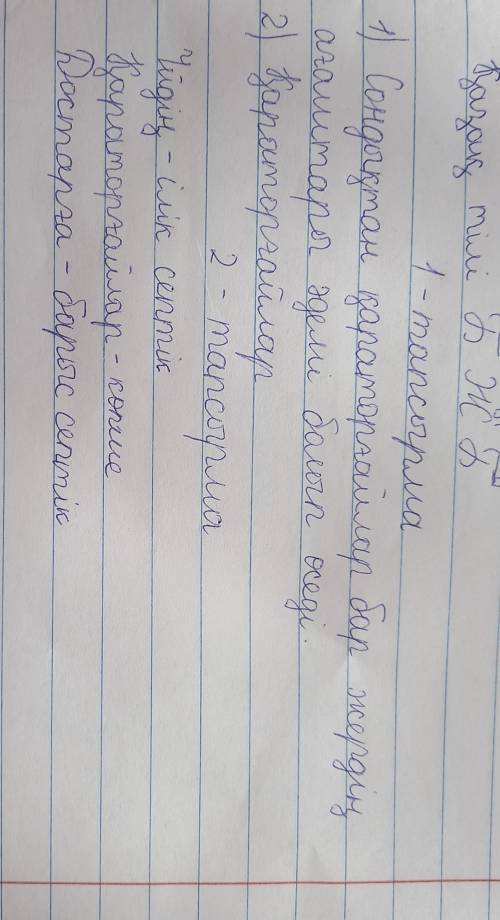 Қазақ тілі БЖБ
1-тапсырма
1) Сондықтан қараторғайлар бар жердің
ағаштары әдемі болып өседі.
2) Қараторғайлар
2-тапсырма
Үйдің - ілік септік
Қараторғайлар - көпше
Достарға - барыс септік